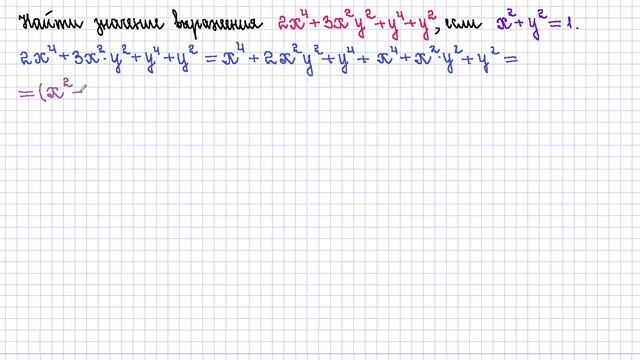 Найти значение выражения 2x⁴+3x²y²+y⁴+y², если x²+y²=1.
2x⁴+3x²·y²+y⁴+y²=x⁴+2x²y²+y⁴+x⁴+x²·y²+y²=
=(x²-